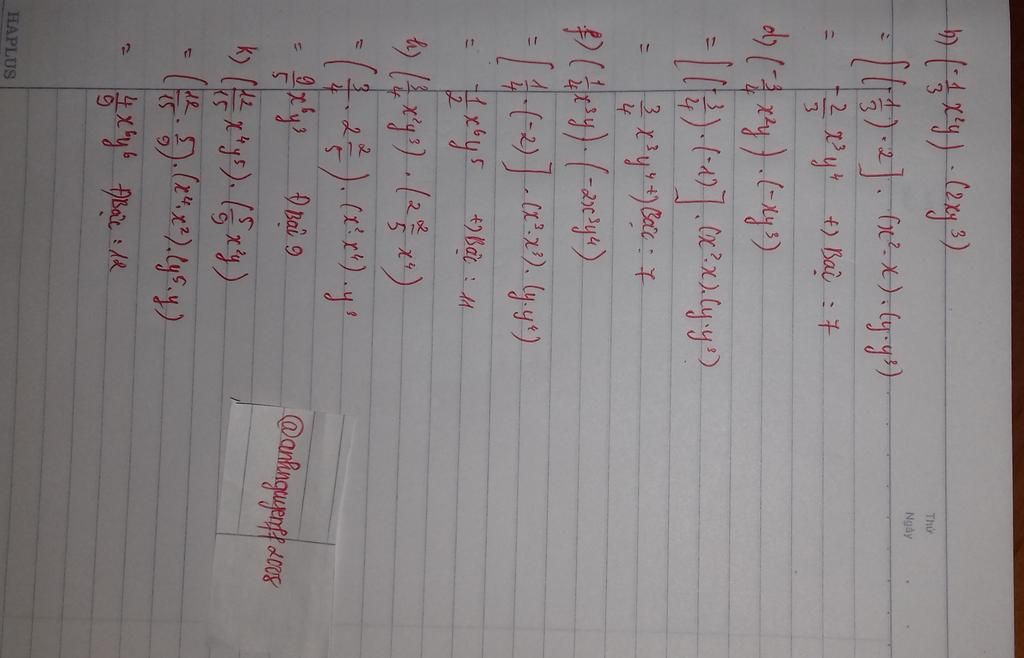 Thứ
Ngày
b) (-1/3 x²y) . (2xy³)
= [(-1/3) . 2] . (x² . x) . (y . y³)
= -2/3 x³y⁴ +) Bậc : 7
d) (-3/4 x²y) . (-xy³)
= [(-3/4) . (-1)] . (x² . x) . (y . y³)
= 3/4 x³y⁴ +) Bậc : 7
f) (1/4 x³y) . (-2x³y⁴)
= [1/4 . (-2)] . (x³ . x³) . (y . y⁴)
= -1/2 x⁶y⁵ +) Bậc : 11
h) (3/4 x²y³) . (2 2/5 x⁴)
= (3/4 . 2 2/5) . (x² . x⁴) . y³
= 9/5 x⁶y³ +) Bậc 9
k) (12/15 x⁴y⁵) . (5/9 x²y)
= (12/15 . 5/9) . (x⁴ . x²) . (y⁵ . y)
= 4/9 x⁴y⁶ +) Bậc : 12
HAPLUS